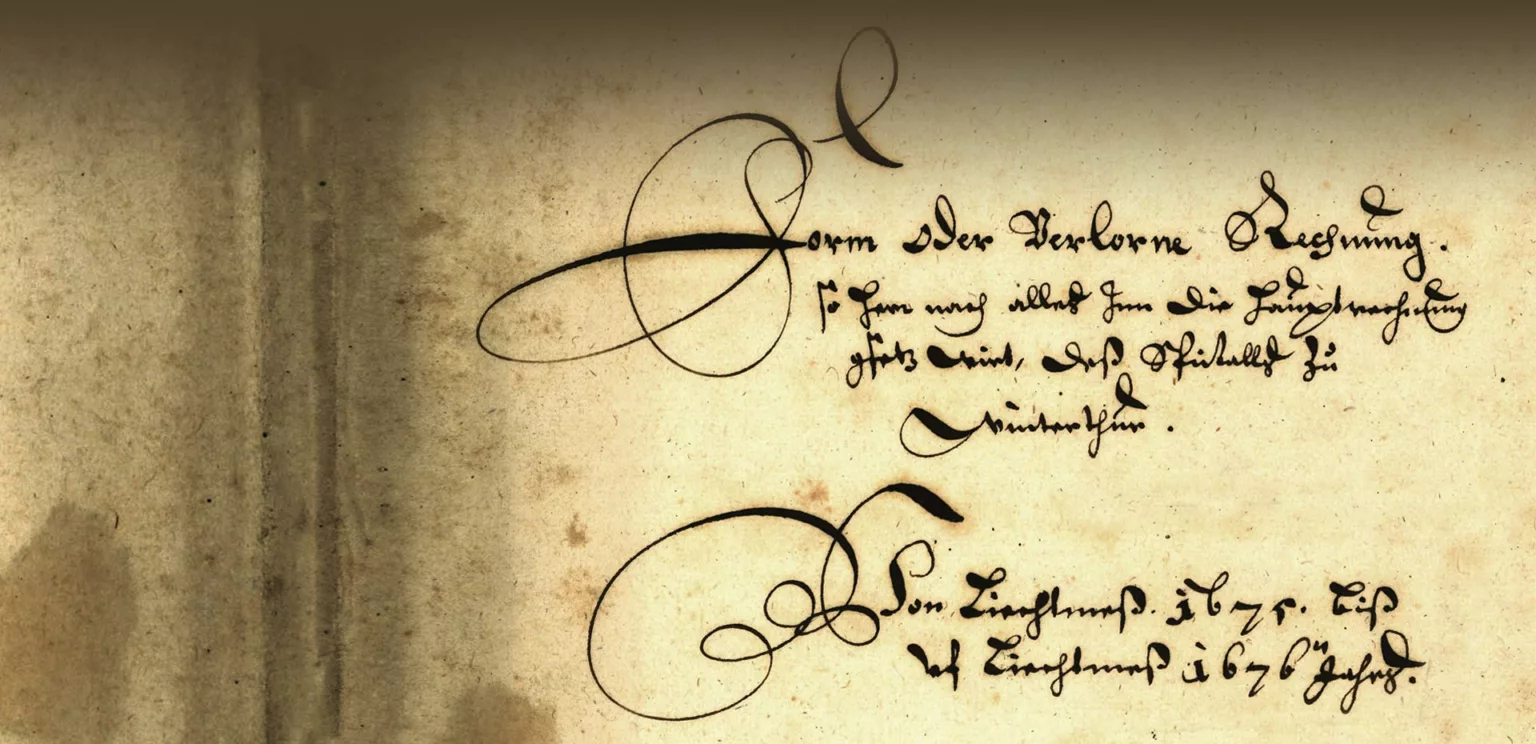 Form oder Verlorne Rechnung.
so hern nach alles Inn die Hauptrechnung
gsetz wirt, deß Spitalls zu
Winterthur.
Von Liechtmeß. 1675. biß
uf Liechtmeß 1676 Jahrs.